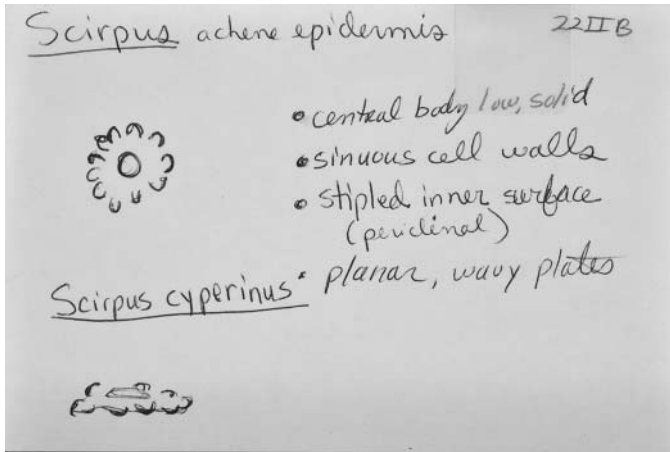 Scirpus achene epidermis 22IIB
• central body low, solid
• sinuous cell walls
• stipled inner surface
(periclinal)
Scirpus cyperinus • planar, wavy plates